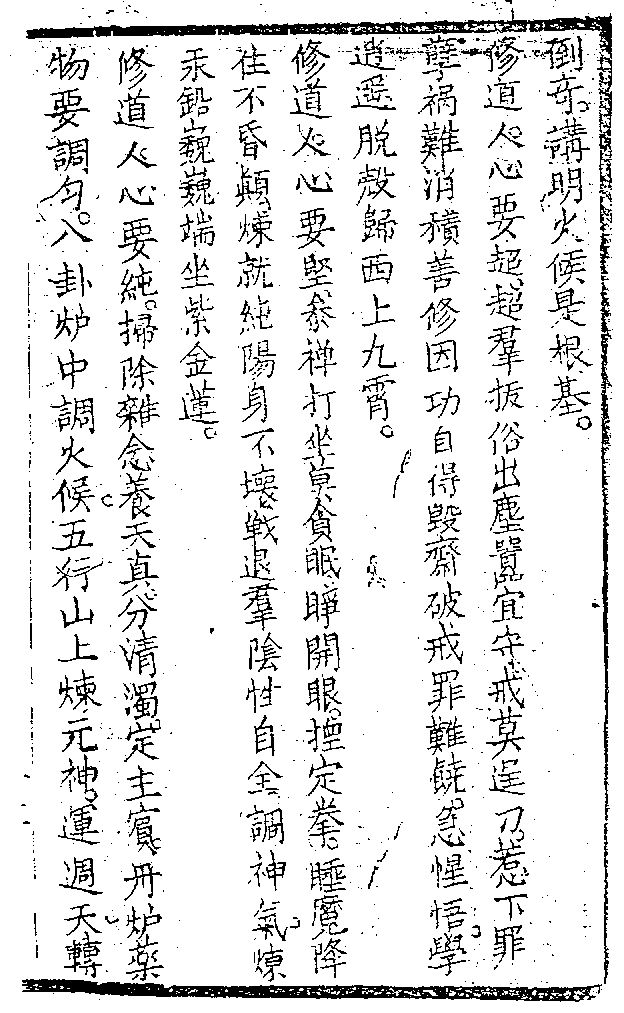 倒奇。講明火候是根基。
修道人心要超、超羣拔俗出塵囂宜守戒莫逞刁、惹下罪
孽禍難消積善修因功自得毀齋破戒罪難饒。急惺悟學
逍遥脫殼歸西上九霄。
修道人心要堅叅禅打坐莫貪眠、睜開眼捏定拳。睡魔降
住不昏顛煉就純陽身不壞、戰退羣陰性自全調神氣。煉
汞鉛巍巍端坐紫金蓮。
修道人心要純。掃除雜念養天真分清濁、定主賓、丹炉藥
物要調匀。八卦炉中調火候。五行山上煉元神。運週天轉